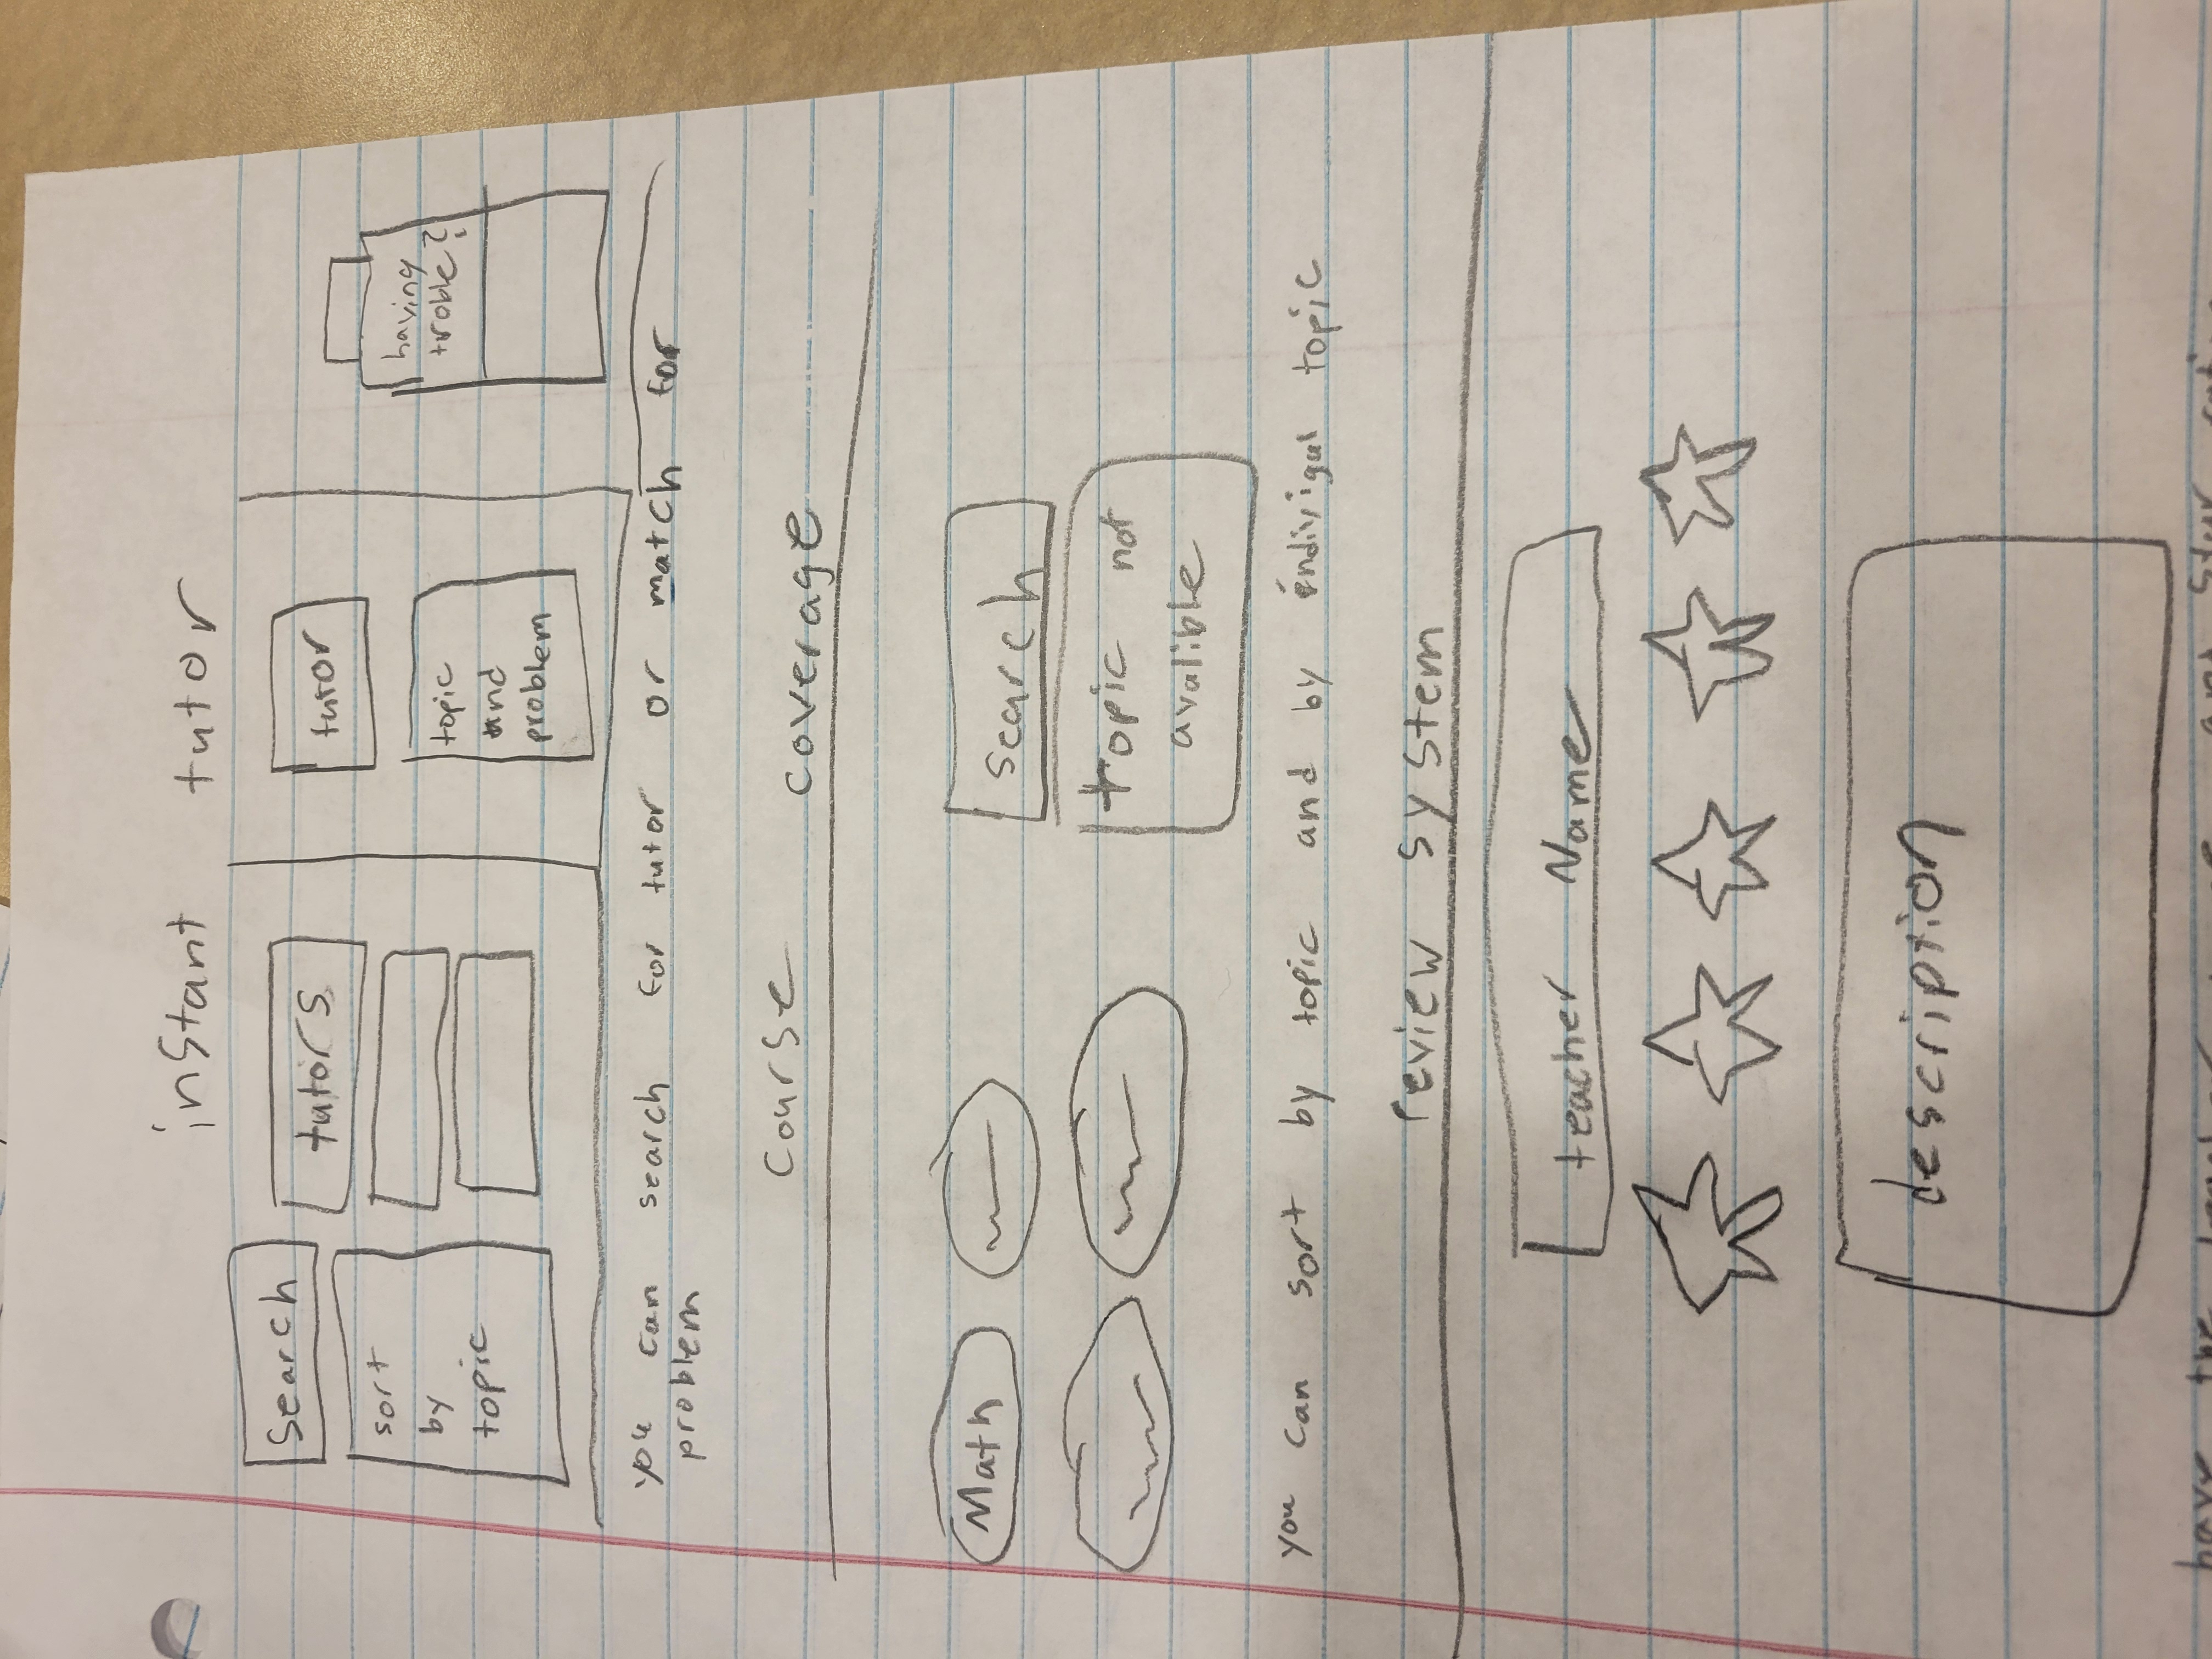 instant tutor
search
tutors
sort
by
topic
tutor
topic
and
problem
having
troble?
you can search for tutor or match for
problem
course coverage
Math
search
topic not
avalible
you can sort by topic and by endivigul topic
review system
teacher Name
description
have the
and star